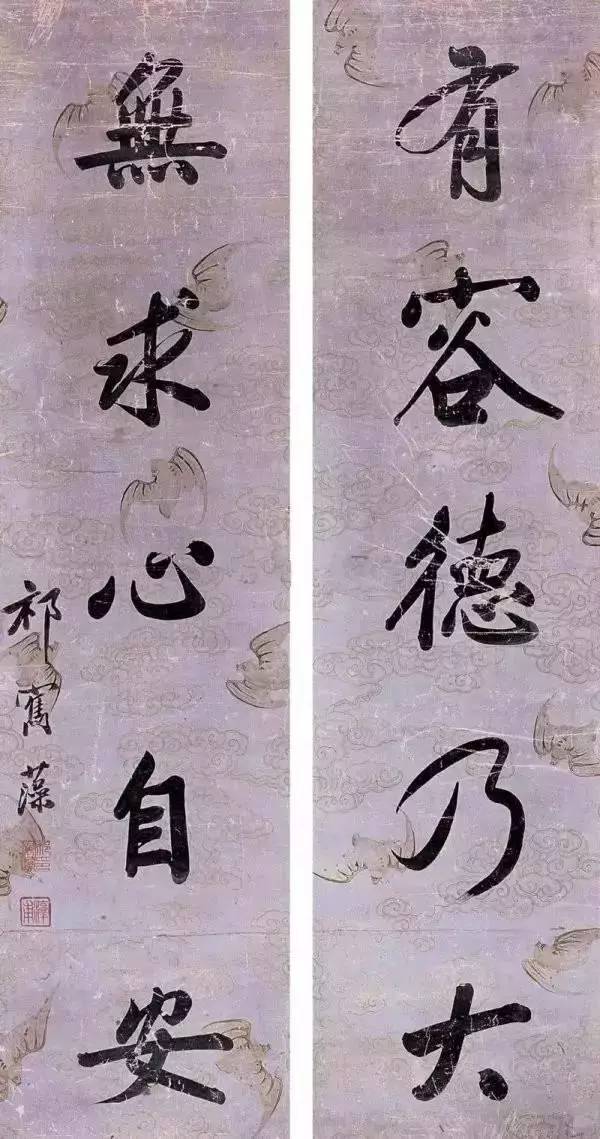 有容德乃大
無求心自安
祁寯藻
淳甫